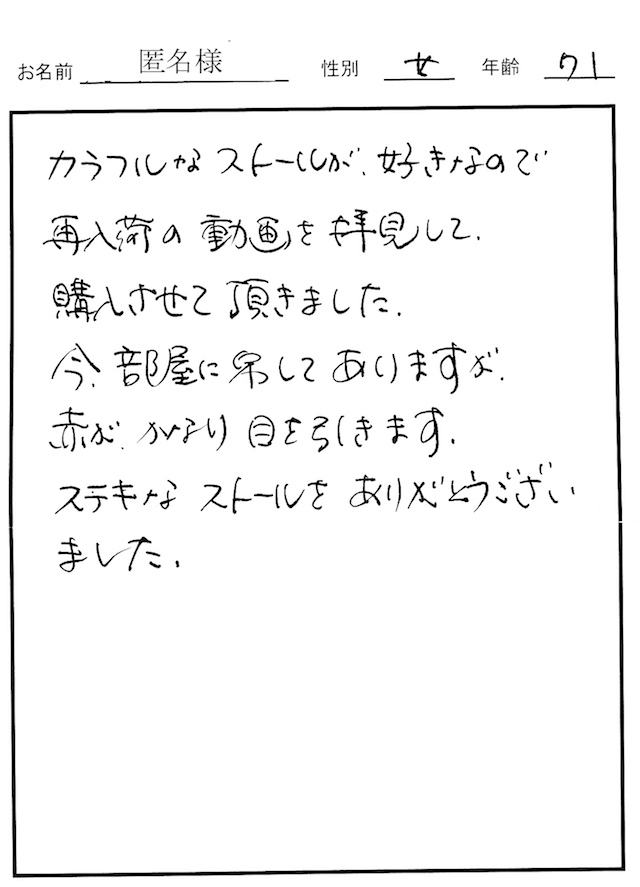 お名前 匿名様 性別 女 年齢 71
カラフルな ストールが、好きなので
再入荷の 動画を拝見して、
購入させて頂きました。
今、部屋に吊してありますが、
赤が、かなり 目を引きます。
ステキな ストールを ありがとうござい
ました。